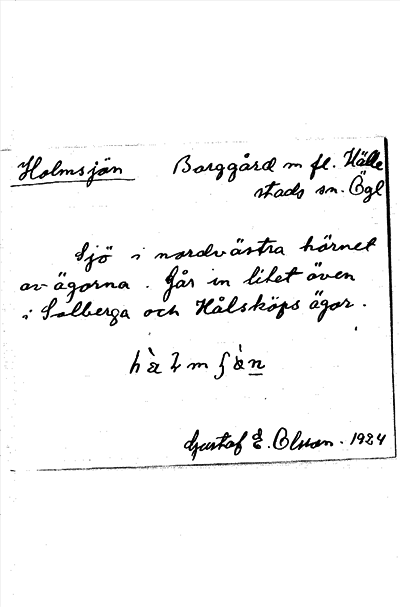 Holmsjön Borggård m fl. Hälle
stads sn. Ögl
Sjö i nordvästra hörnet
av ägorna. Går in litet även
i Solberga och Hålsköps ägor.
Gustaf E. Olsson. 1924